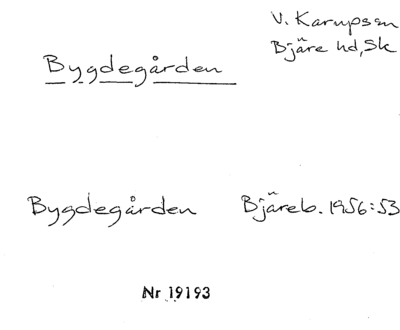 V. Karupsen
Bjäre hd, Sk
Bygdegården
Bygdegården Bjäreb. 1956:53
Nr 19193